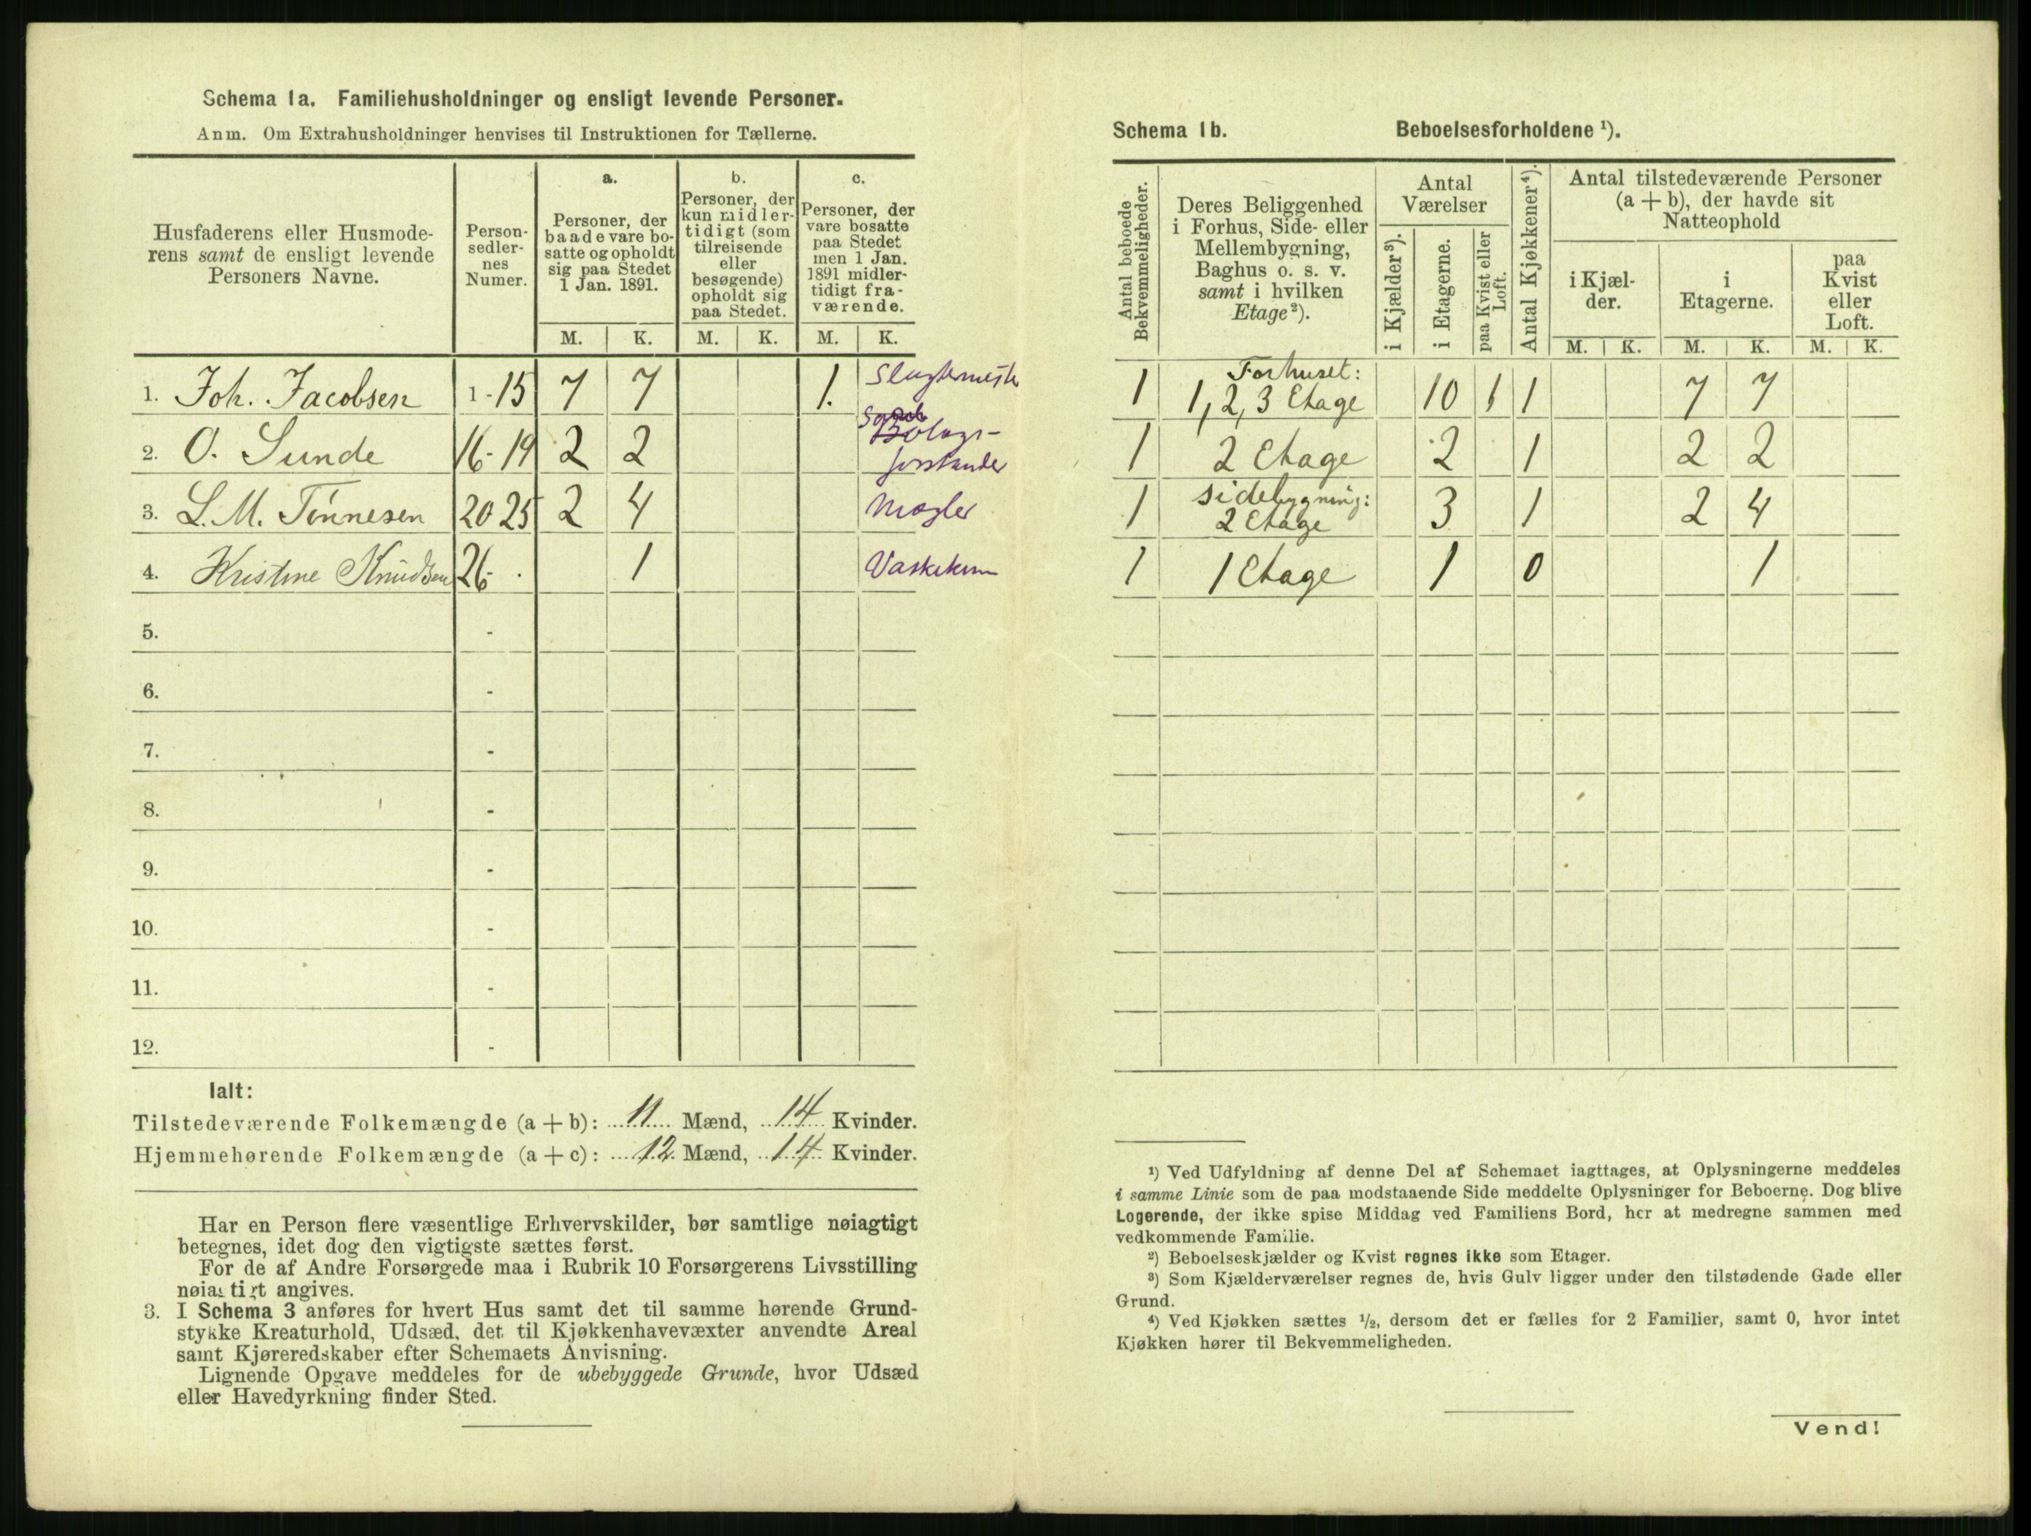 Schema 1a. Familiehusholdninger og ensligt levende Personer.
Anm. Om Extrahusholdninger henvises til Instruktionen for Tællerne.
Husfaderens eller Husmode-
rens samt de ensligt levende
Personers Navne.
Person-
sedler-
nes
Numer.
a.
Personer, der
baade vare bo-
satte og opholdt
sig paa Stedet
1 Jan. 1891.
b.
Personer, der
kun midler-
tidigt (som
tilreisende
eller
besøgende)
opholdt sig
paa Stedet.
c.
Personer, der
vare bosatte
paa Stedet
men 1 Jan.
1891 midler-
tidigt fra-
værende.
M. K. M. K. M. K.
1. Joh. Jacobsen 1 - 15 7 7 1. Slagtermester
2. O. Sunde 16 - 19 2 2 Bolags-
forstander
3. L. M. Tønnesen 20 25 2 4 Mægler
4. Kristine Knudsen 26 - . 1 Vaskekone
5. -
6. -
7. -
8. -
9. -
10. -
11. -
12. -
Ialt:
Tilstedeværende Folkemængde (a + b): 11 Mænd, 14 Kvinder.
Hjemmehørende Folkemængde (a + c): 12 Mænd, 14 Kvinder.
Har en Person flere væsentlige Erhvervskilder, bør samtlige nøiagtigt
betegnes, idet dog den vigtigste sættes først.
For de af Andre Forsørgede maa i Rubrik 10 Forsørgerens Livsstilling
nøiagtigt angives.
3. I Schema 3 anføres for hvert Hus samt det til samme hørende Grund-
stykke Kreaturhold, Udsæd, det til Kjøkkenhavevæxter anvendte Areal
samt Kjøreredskaber efter Schemaets Anvisning.
Lignende Opgave meddeles for de ubebyggede Grunde, hvor Udsæd
eller Havedyrkning finder Sted.
Schema 1b. Beboelsesforholdene ¹).
Antal beboede
Bekvemmeligheder.
Deres Beliggenhed
i Forhus, Side- eller
Mellembygning,
Baghus o. s. v.
samt i hvilken
Etage ²).
Antal
Værelser
i Kjælder ³).
i Etagerne.
paa Kvist eller
Loft.
Antal Kjøkkener ⁴).
Antal tilstedeværende Personer
(a + b), der havde sit
Natteophold
i Kjæl-
der.
i
Etagerne.
paa
Kvist
eller
Loft.
M. K. M. K. M. K.
1 Forhuset:
1, 2, 3 Etage 10 1 1 7 7
1 2 Etage 2 1 2 2
1 Sidebygning:
2 Etage 3 1 2 4
1 1 Etage 1 0 1
¹) Ved Udfyldning af denne Del af Schemaet iagttages, at Oplysningerne meddeles
i samme Linie som de paa modstaaende Side meddelte Oplysninger for Beboerne. Dog blive
Logerende, der ikke spise Middag ved Familiens Bord, her at medregne sammen med
vedkommende Familie.
²) Beboelseskjælder og Kvist regnes ikke som Etager.
³) Som Kjælderværelser regnes de, hvis Gulv ligger under den tilstødende Gade eller
Grund.
⁴) Ved Kjøkken sættes ½, dersom det er fælles for 2 Familier, samt 0, hvor intet
Kjøkken hører til Bekvemmeligheden.
Vend!